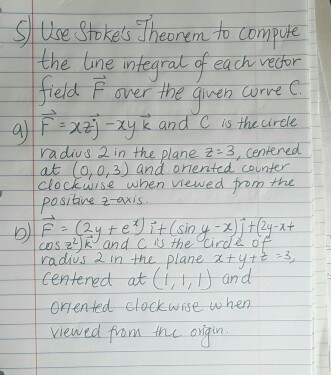 5) Use Stoke's Theorem to compute
the line integral of each vector
field F⃗ over the given curve C.
a) F⃗ = xzj⃗ - xy k⃗ and C is the circle
radius 2 in the plane z=3, centered
at (0,0,3) and oriented counter
clockwise when viewed from the
positive z-axis.
b) F⃗ = (2y + eˣ) i⃗ + (sin y - x) j⃗ + (2y - x +
cos z²) k⃗ and C is the circle of
radius 2 in the plane x + y + z = 3,
centered at (1, 1, 1) and
oriented clockwise when
viewed from the origin.